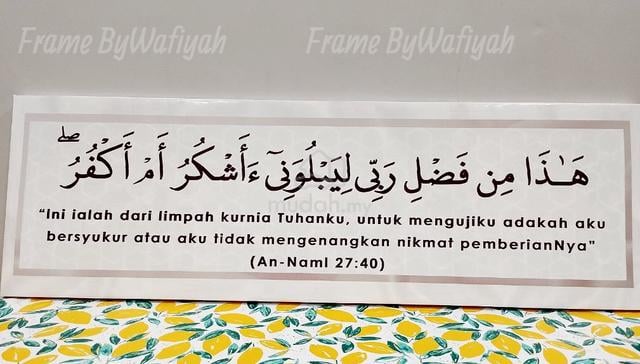 Frame ByWafiyah Frame ByWafiyah
هَٰذَا مِن فَضْلِ رَبِّي لِيَبْلُوَنِيٓ ءَأَشْكُرُ أَمْ أَكْفُرُ ۖ
mudah.my
“Ini ialah dari limpah kurnia Tuhanku, untuk mengujiku adakah aku
bersyukur atau aku tidak mengenangkan nikmat pemberianNya”
(An-Naml 27:40)